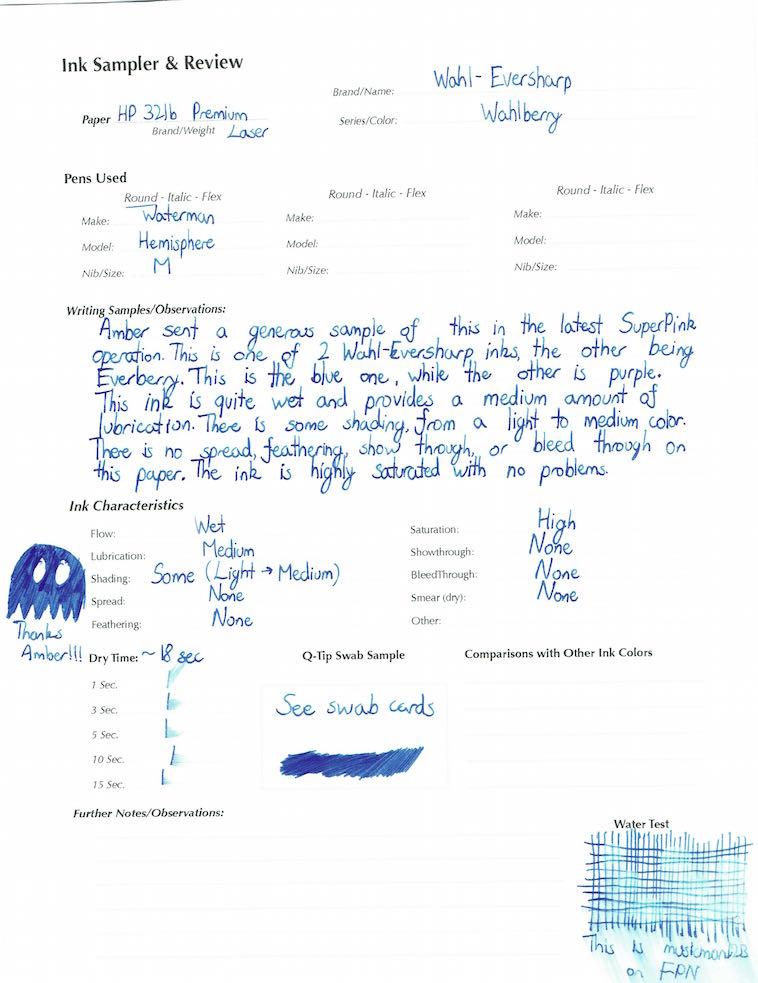 Ink Sampler & Review
Brand/Name: Wahl-Eversharp
Paper HP 32lb Premium
Brand/Weight Laser
Series/Color: Wahlberry
Pens Used
Round - Italic - Flex
Make: Waterman
Model: Hemisphere
Nib/Size: M
Round - Italic - Flex
Make:
Model:
Nib/Size:
Round - Italic - Flex
Make:
Model:
Nib/Size:
Writing Samples/Observations:
Amber sent a generous sample of this in the latest SuperPink
operation. This is one of 2 Wahl-Eversharp inks, the other being
Everberry. This is the blue one, while the other is purple.
This ink is quite wet and provides a medium amount of
lubrication. There is some shading, from a light to medium color.
There is no spread, feathering, show through, or bleed through on
this paper. The ink is highly saturated with no problems.
Ink Characteristics
Flow: Wet
Lubrication: Medium
Shading: Some (Light → Medium)
Spread: None
Feathering: None
Saturation: High
Showthrough: None
BleedThrough: None
Smear (dry): None
Other:
Thanks
Amber!!!
Dry Time: ~18 sec
1 Sec.
3 Sec.
5 Sec.
10 Sec.
15 Sec.
Q-Tip Swab Sample
See swab cards
Comparisons with Other Ink Colors
Further Notes/Observations:
Water Test
This is
on FPN